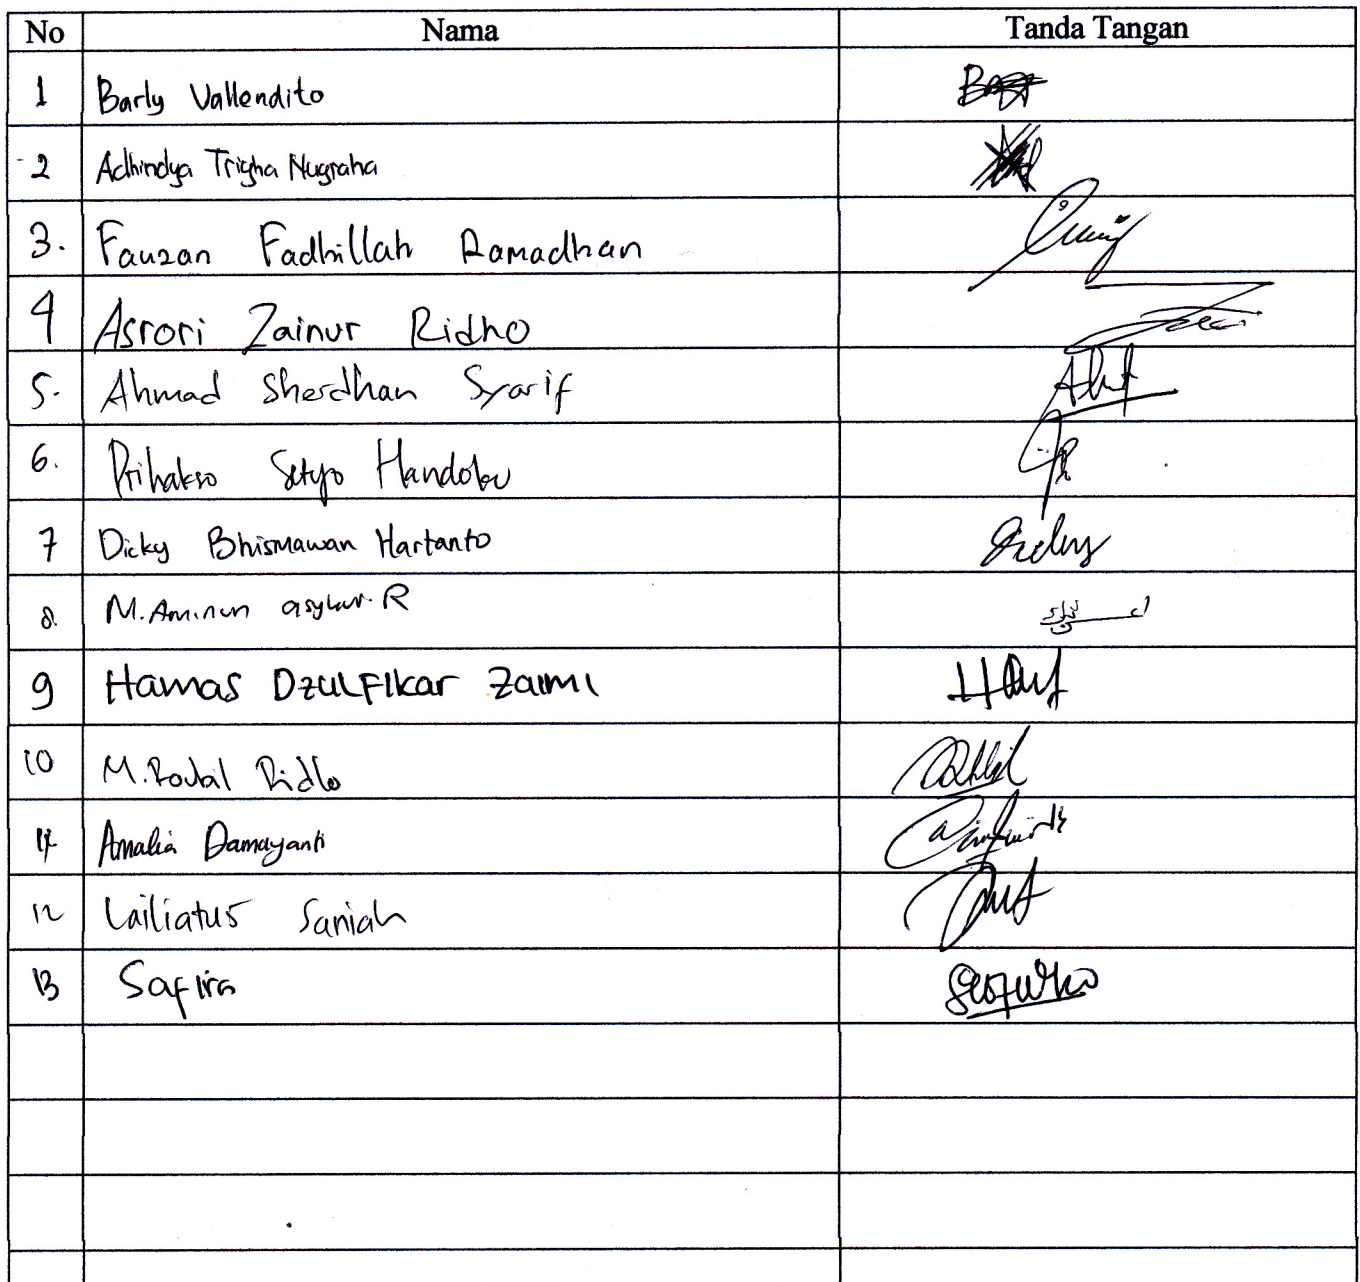 No Nama Tanda Tangan
1 Barly Vallendito
2 Adhindya Trigha Nugraha
3. Fauzan Fadhillah Ramadhan
4 Asrori Zainur Ridho
5. Ahmad Sherdhan Syarif
6. Prihakso Setyo Handoko
7 Dicky Bhismawan Hartanto
8. M. Aminun asykur R
9 Hamas Dzulfikar Zaimi
10 M. Ridlo
11 Amalia Damayanti
12 Lailiatus Saniah
13 Safira